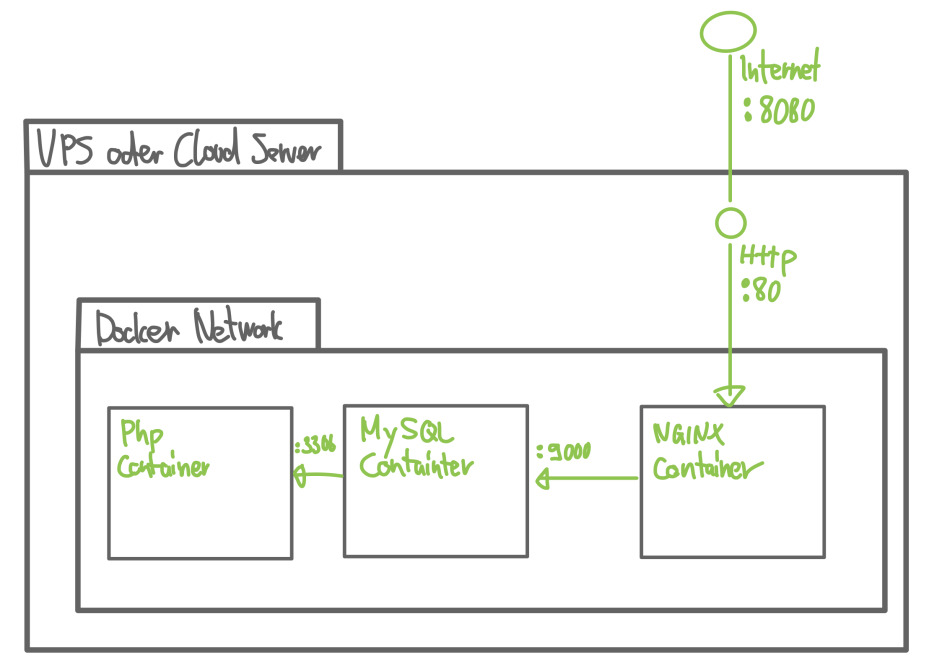 Internet
:8080
VPS oder Cloud Server
Http
:80
Docker Network
Php
Container
:3306
MySQL
Containter
:9000
NGINX
Container